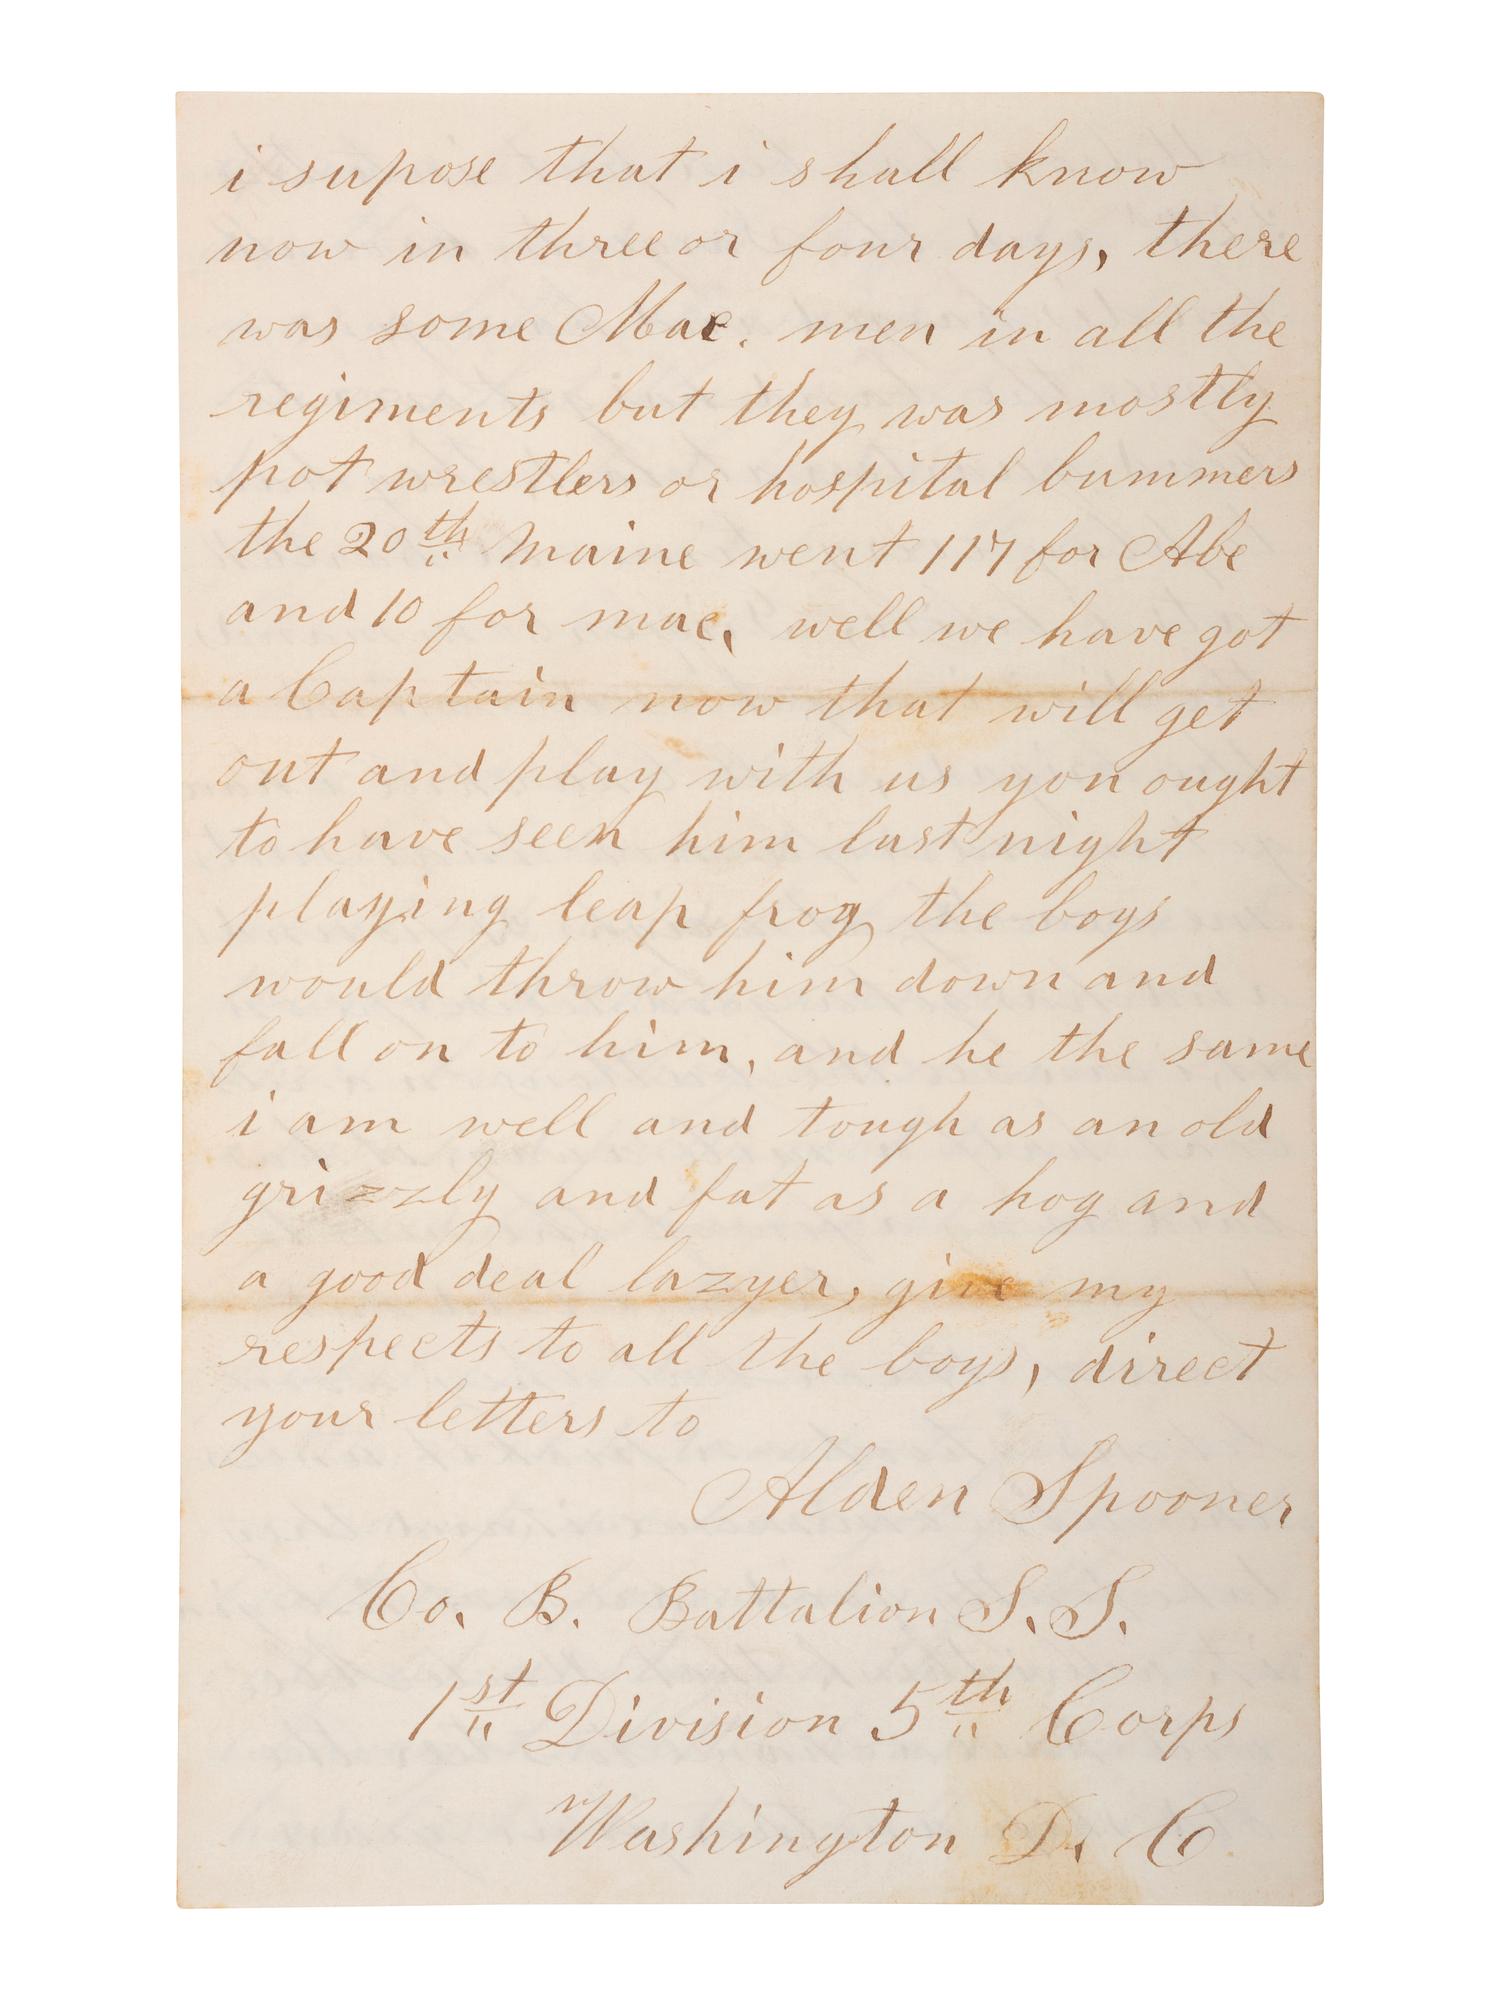 i supose that i shall know
now in three or four days, there
was some Mac. men in all the
regiments but they was mostly
pot wrestlers or hospital bummers
the 20th Maine went 117 for Abe
and 10 for mac, well we have got
a Captain now that will get
out and play with us you ought
to have seen him last night
playing leap frog the boys
would throw him down and
fall on to him, and he the same
i am well and tough as an old
grizzly and fat as a hog and
a good deal lazyer, give my
respects to all the boys, direct
your letters to
Alden Spooner
Co. B. Battalion S. S.
1st Division 5th Corps
Washington D. C